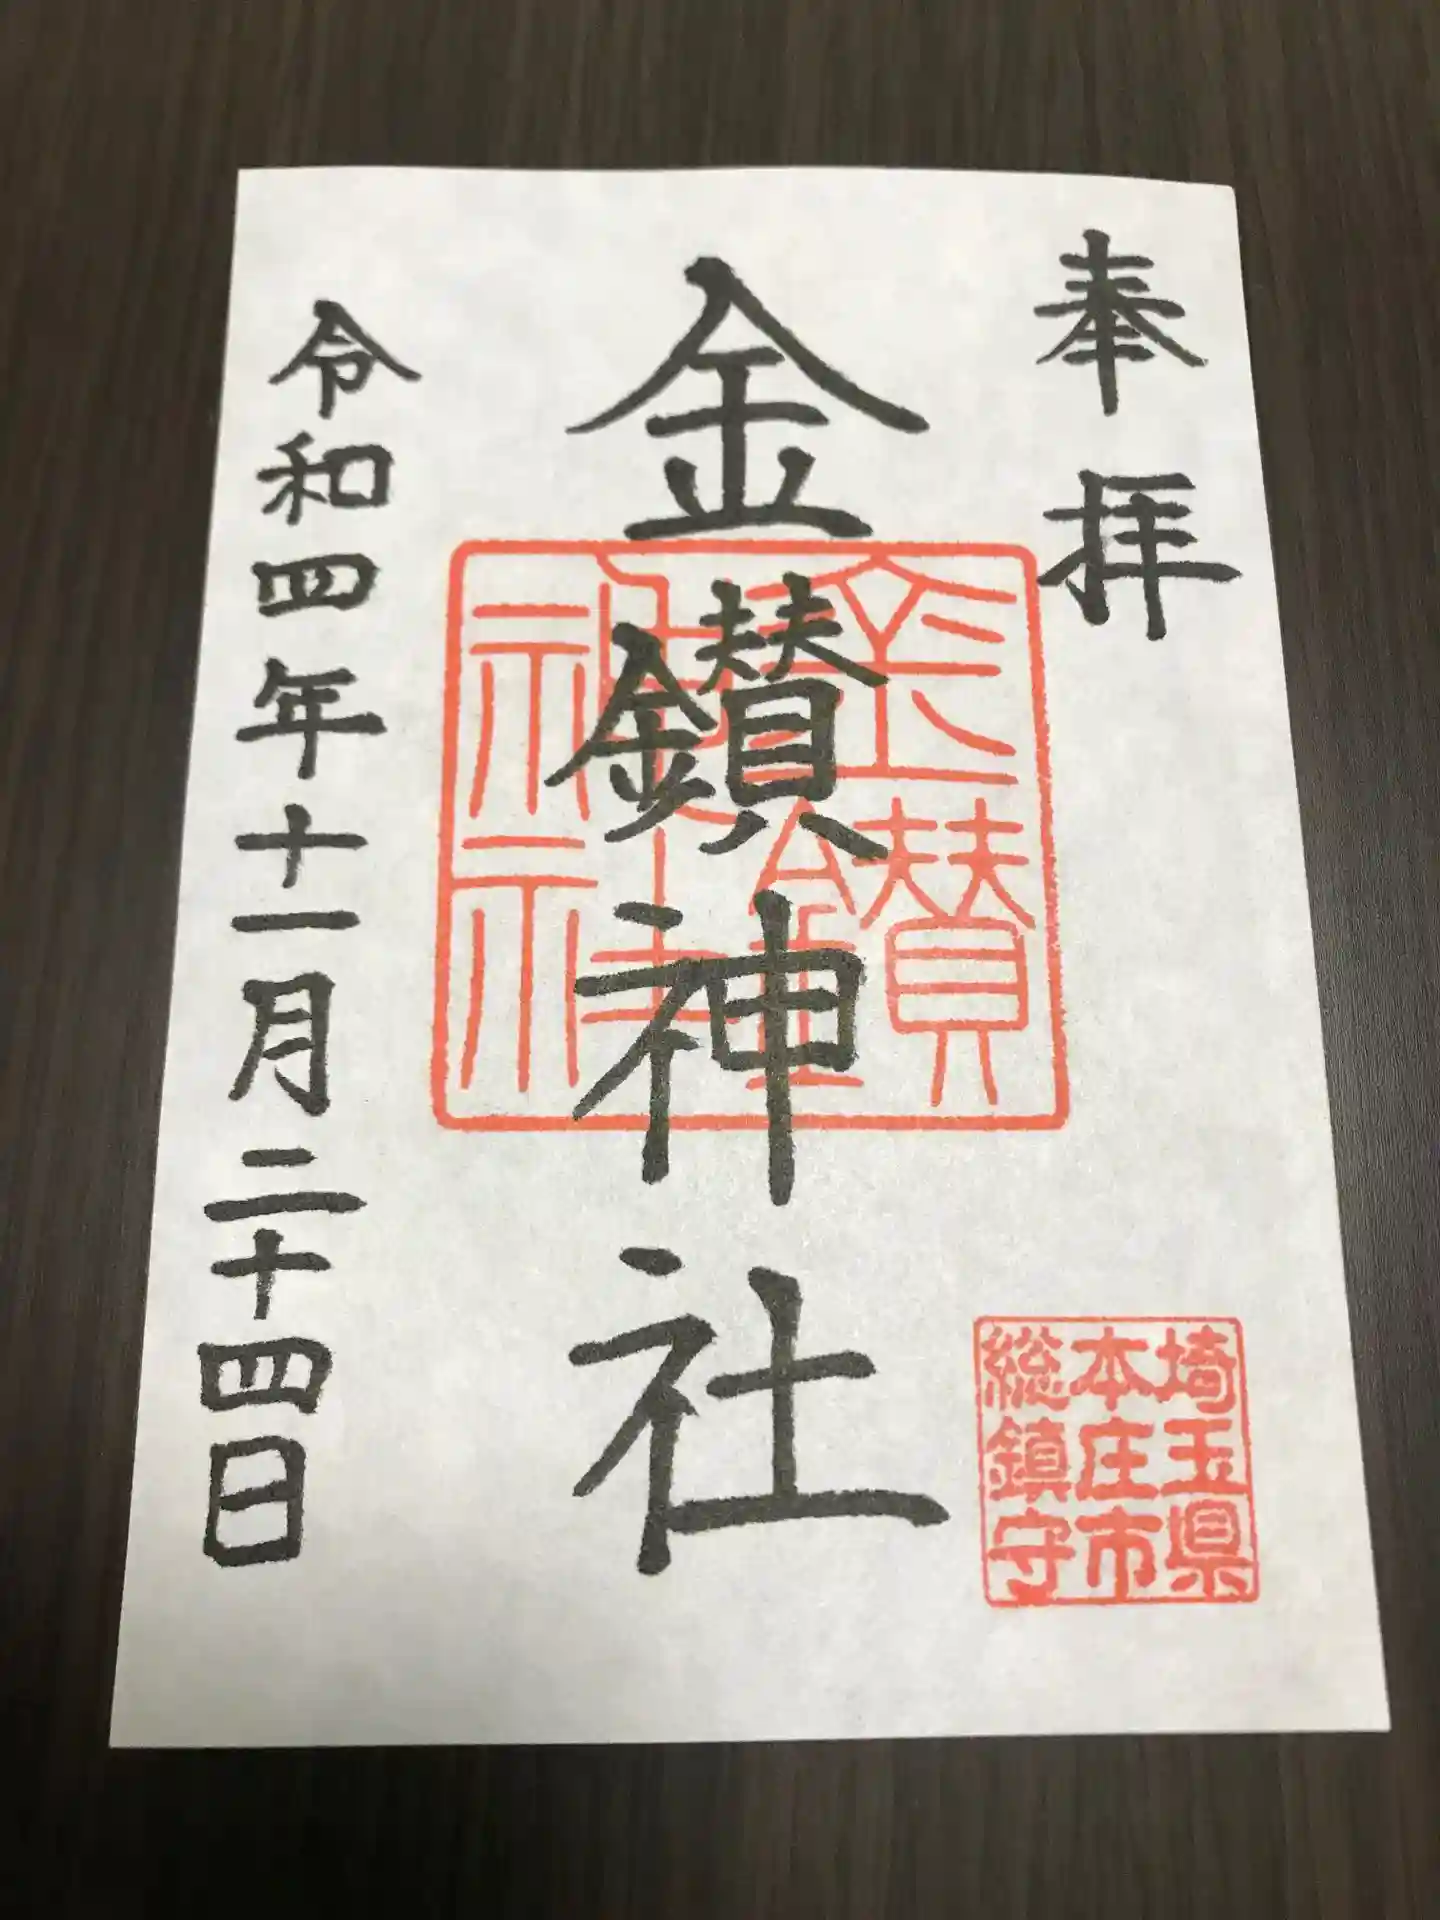 奉拝
金鑚神社
金鑚神社
令和四年十一月二十四日
埼玉県
本庄市
総鎮守